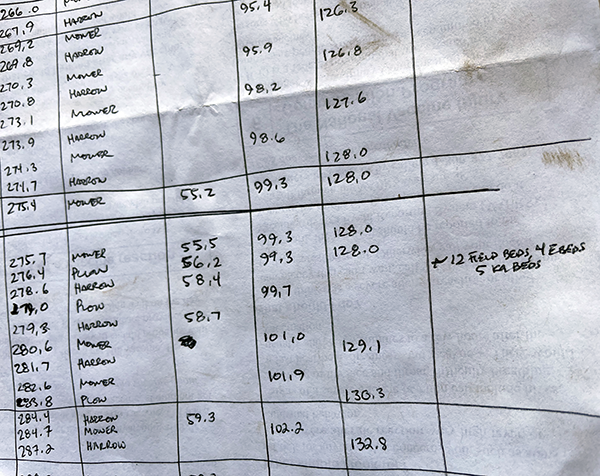 266.0
267.9 HARROW 95.4
269.2 MOWER 126.3
269.8 HARROW 95.9
270.3 MOWER 126.8
270.8 HARROW 98.2
273.1 MOWER 127.6
273.9 HARROW 98.6
274.3 MOWER 128.0
274.7 HARROW
275.4 MOWER 55.2 99.3 128.0
275.7 MOWER 55.5 99.3 128.0
276.4 PLOW 56.2 99.3 128.0
12 FIELD BEDS, 4 E BEDS
5 KA BEDS
278.6 HARROW 58.4 99.7
PLOW 58.7
279.3 HARROW
280.6 MOWER
281.7 HARROW 101.0
282.6 MOWER 129.1
283.8 PLOW 101.9 130.3
284.4 HARROW 59.3
284.7 MOWER 102.2
287.2 HARROW 132.8